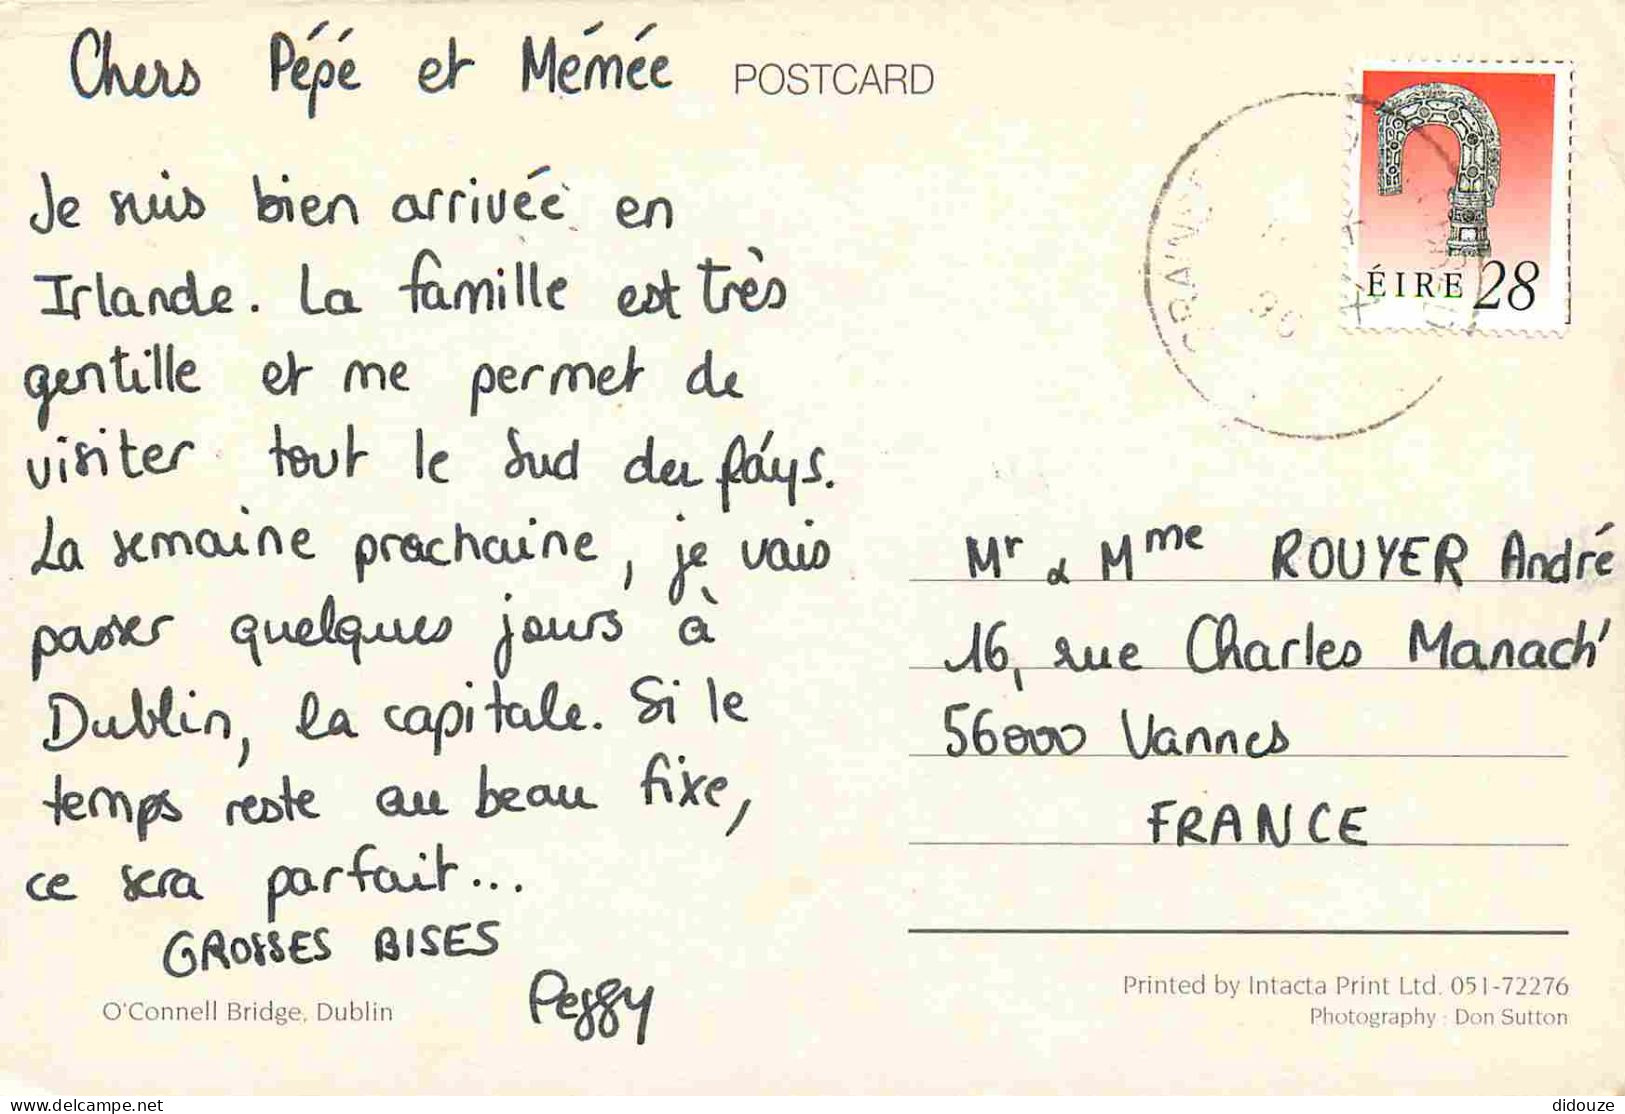 Chers Pépé et Mémée
POSTCARD
Je suis bien arrivée en
Irlande. La famille est très
gentille et me permet de
visiter tout le Sud du pays.
La semaine prochaine, je vais
passer quelques jours à
Dublin, la capitale. Si le
temps reste au beau fixe,
ce sera parfait...
GROSSES BISES
Peggy
O'Connell Bridge, Dublin
ÉIRE 28
Mr & Mme ROUYER André
16, rue Charles Manach'
56000 Vannes
FRANCE
Printed by Intacta Print Ltd. 051-72276
Photography : Don Sutton
didouze